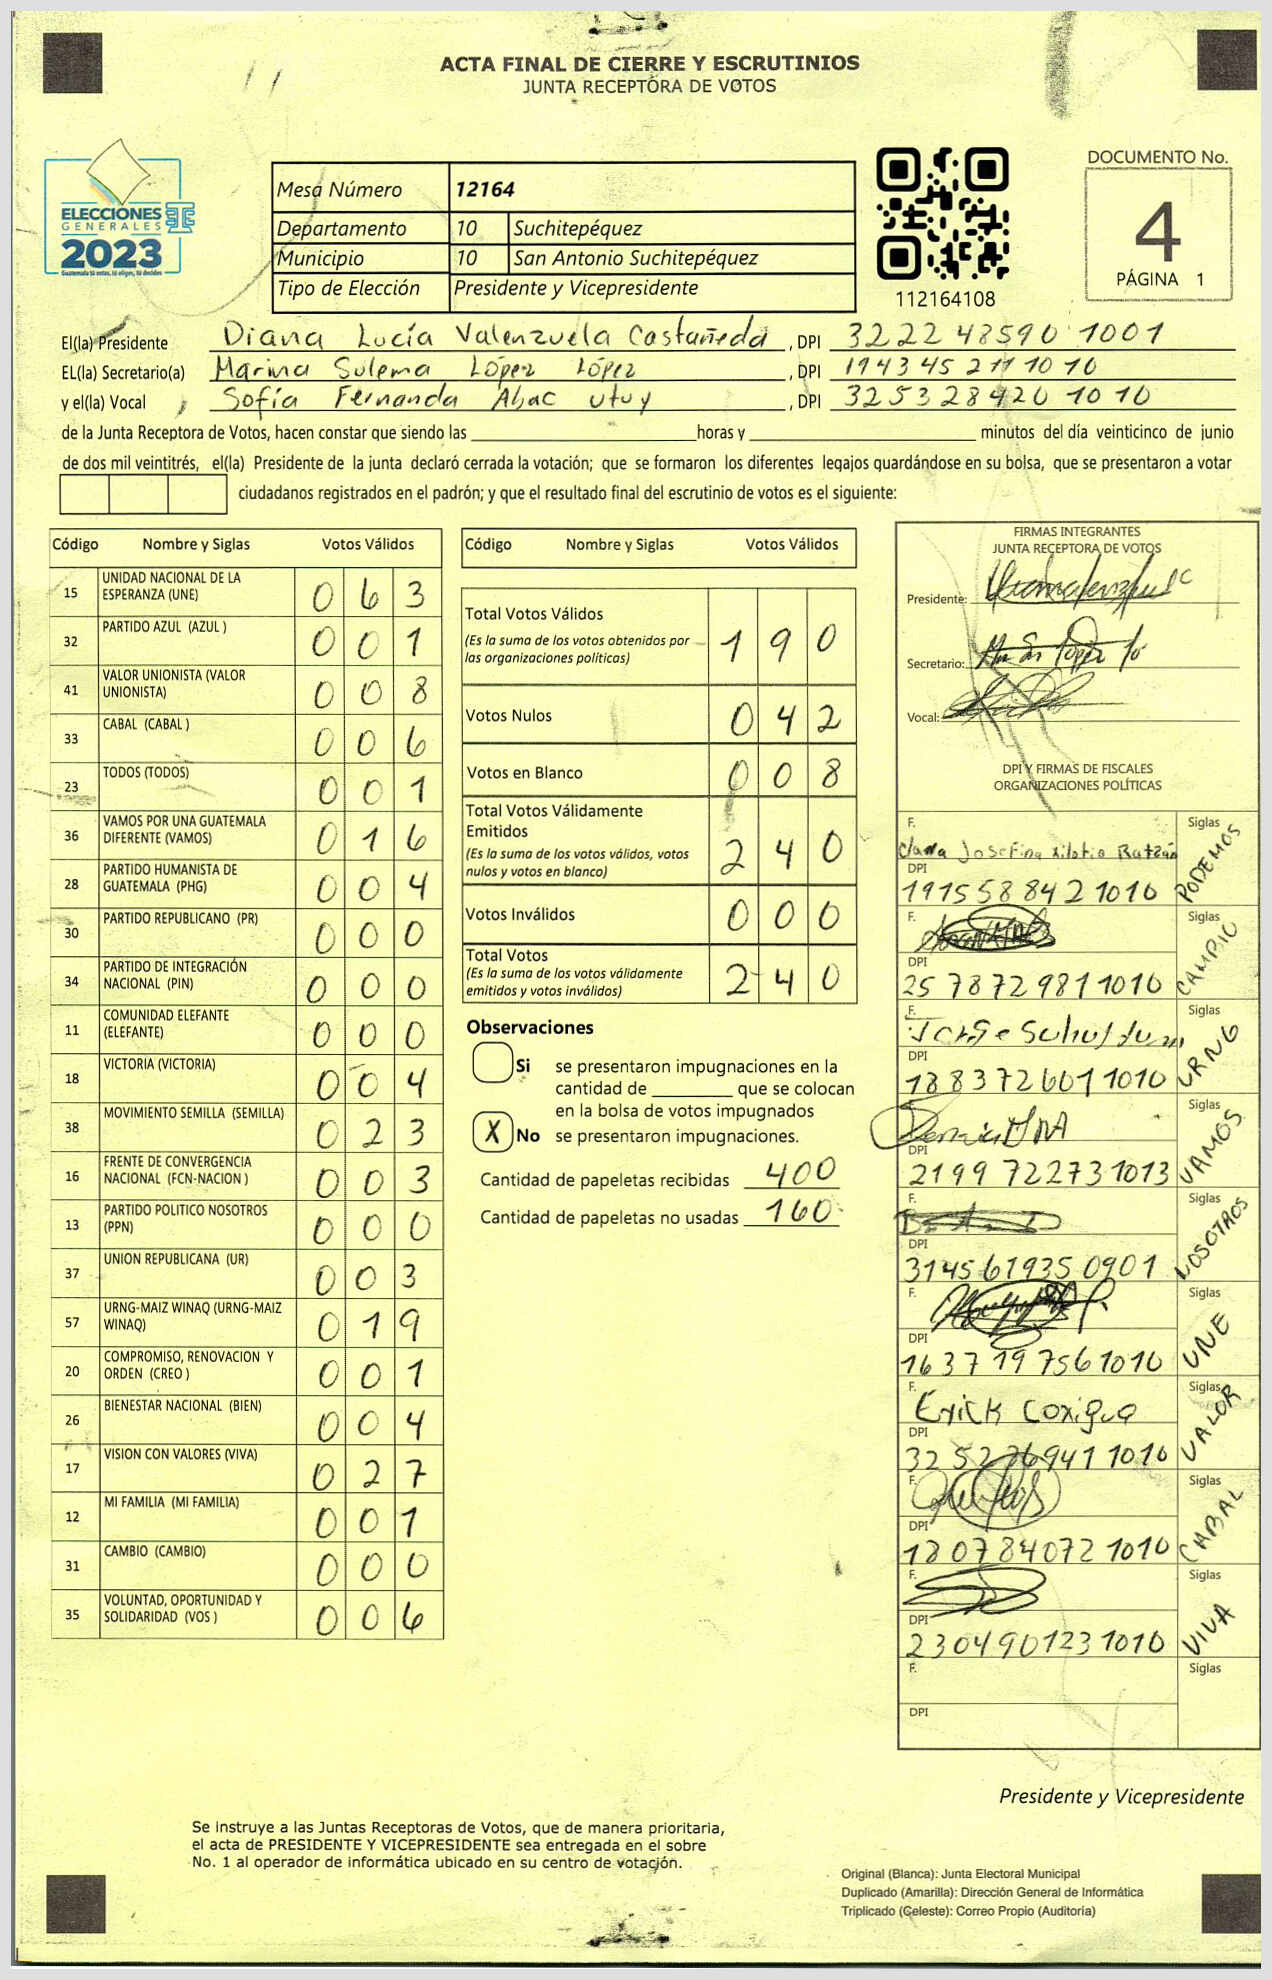 ACTA FINAL DE CIERRE Y ESCRUTINIOS
JUNTA RECEPTORA DE VOTOS
ELECCIONES
GENERALES
2023
Guatemala tú votas, tú eliges, tú decides
Mesa Número 12164
Departamento 10 Suchitepéquez
Municipio 10 San Antonio Suchitepéquez
Tipo de Elección Presidente y Vicepresidente
112164108
DOCUMENTO No.
4
PÁGINA 1
El(la) Presidente Diana Lucía Valenzuela Castañeda, DPI 3222 48590 1001
EL(la) Secretario(a) Marina Sulema López López, DPI 1943 45 211 10 10
y el(la) Vocal Sofía Fernanda Abac Utuy, DPI 325328420 1010
de la Junta Receptora de Votos, hacen constar que siendo las horas y minutos del día veinticinco de junio
de dos mil veintitrés, el(la) Presidente de la junta declaró cerrada la votación; que se formaron los diferentes legajos guardándose en su bolsa, que se presentaron a votar
ciudadanos registrados en el padrón; y que el resultado final del escrutinio de votos es el siguiente:
Código Nombre y Siglas Votos Válidos
15 UNIDAD NACIONAL DE LA ESPERANZA (UNE) 0 6 3
32 PARTIDO AZUL (AZUL ) 0 0 1
41 VALOR UNIONISTA (VALOR UNIONISTA) 0 0 8
33 CABAL (CABAL ) 0 0 6
23 TODOS (TODOS) 0 0 1
36 VAMOS POR UNA GUATEMALA DIFERENTE (VAMOS) 0 1 6
28 PARTIDO HUMANISTA DE GUATEMALA (PHG) 0 0 4
30 PARTIDO REPUBLICANO (PR) 0 0 0
34 PARTIDO DE INTEGRACIÓN NACIONAL (PIN) 0 0 0
11 COMUNIDAD ELEFANTE (ELEFANTE) 0 0 0
18 VICTORIA (VICTORIA) 0 0 4
38 MOVIMIENTO SEMILLA (SEMILLA) 0 2 3
16 FRENTE DE CONVERGENCIA NACIONAL (FCN-NACION ) 0 0 3
13 PARTIDO POLITICO NOSOTROS (PPN) 0 0 0
37 UNION REPUBLICANA (UR) 0 0 3
57 URNG-MAIZ WINAQ (URNG-MAIZ WINAQ) 0 1 9
20 COMPROMISO, RENOVACION Y ORDEN (CREO ) 0 0 1
26 BIENESTAR NACIONAL (BIEN) 0 0 4
17 VISION CON VALORES (VIVA) 0 2 7
12 MI FAMILIA (MI FAMILIA) 0 0 1
31 CAMBIO (CAMBIO) 0 0 0
35 VOLUNTAD, OPORTUNIDAD Y SOLIDARIDAD (VOS ) 0 0 6
Código Nombre y Siglas Votos Válidos
Total Votos Válidos 1 9 0
(Es la suma de los votos obtenidos por
las organizaciones politicas)
Votos Nulos 0 4 2
Votos en Blanco 0 0 8
Total Votos Válidamente
Emitidos 2 4 0
(Es la suma de los votos válidos, votos
nulos y votos en blanco)
Votos Inválidos 0 0 0
Total Votos 2 4 0
(Es la suma de los votos válidamente
emitidos y votos inválidos)
Observaciones
Si se presentaron impugnaciones en la
cantidad de que se colocan
en la bolsa de votos impugnados
X No se presentaron impugnaciones.
Cantidad de papeletas recibidas 400
Cantidad de papeletas no usadas 160
FIRMAS INTEGRANTES
JUNTA RECEPTORA DE VOTOS
Presidente:
Secretario:
Vocal:
DPI Y FIRMAS DE FISCALES
ORGANIZACIONES POLÍTICAS
F. Josefina Siglas PODEMOS
DPI
1915 58842 1010
F. Siglas CAMBIO
DPI
25 7872981 1010
F. Jorge Siglas URNG
DPI
188372601 1010
Siglas VAMOS
DPI
2199 72273 1013
F. Siglas NOSOTROS
DPI
3145 61935 0901
F. Siglas UNE
DPI
1637 19756 1010
F. Erick Coxigua Siglas VALOR
DPI
32 5276941 1010
F. Siglas CABAL
DPI
180784072 1010
F. Siglas VIVA
DPI
230490123 1010
F. Siglas
DPI
Presidente y Vicepresidente
Se instruye a las Juntas Receptoras de Votos, que de manera prioritaria,
el acta de PRESIDENTE Y VICEPRESIDENTE sea entregada en el sobre
No. 1 al operador de informática ubicado en su centro de votación.
Original (Blanca): Junta Electoral Municipal
Duplicado (Amarilla): Dirección General de Informática
Triplicado (Celeste): Correo Propio (Auditoría)